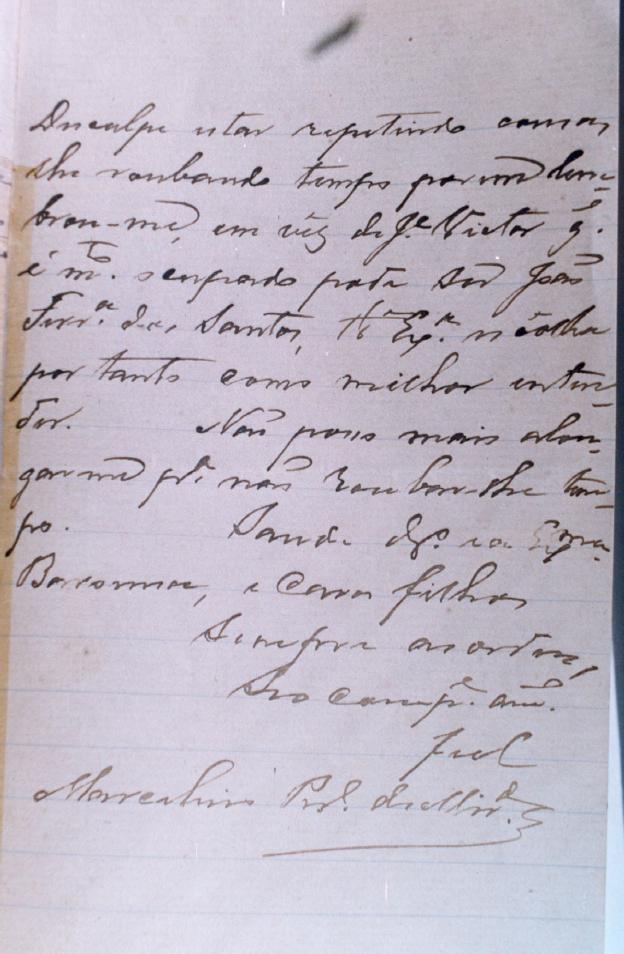 Desculpe estar repetindo cousas
lhe roubando tempo porem lem-
brou-me, em vez de Je. Victor q.
é mto. scupado pode ser João
Ferra. dos Santos, Va Exa. ncolha
por tanto como milhor enten-
der. Não posso mais alon-
gar-me pa. não roubar-lhe tem-
po. Saude da. a Exma.
Baronesa, e Caros filhos
Sempre as ordens,
Seo compe. amo.
Fiel
Marcelino